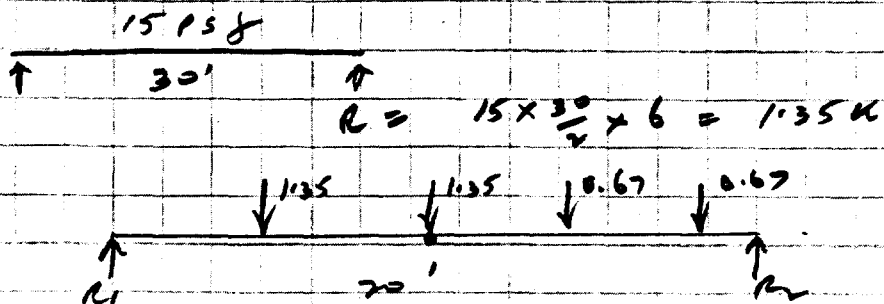 15 psf
30'
R = 15 x 30/2 x 6 = 1.35 K
1.35 1.35 0.67 0.67
R1 20' R2